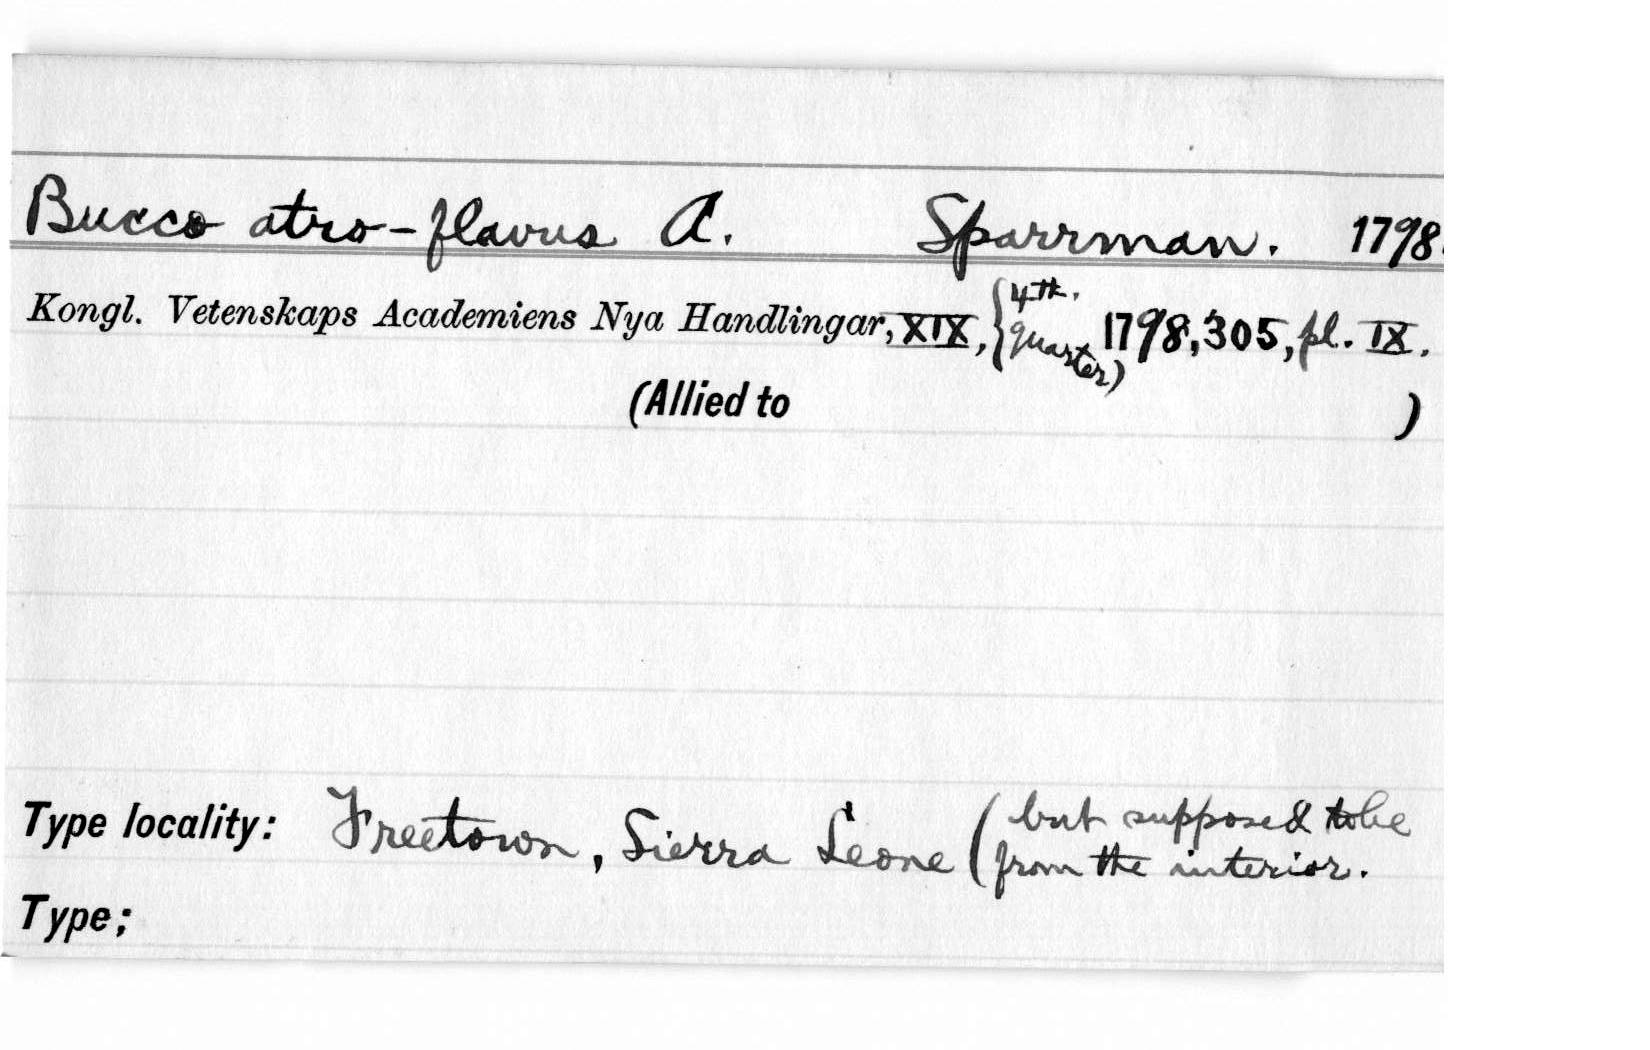 Bucco atro-flavus A. Sparrman. 1798.
Kongl. Vetenskaps Academiens Nya Handlingar, XIX, {4th. quarter) 1798, 305, pl. IX.
(Allied to )
Type locality: Freetown, Sierra Leone (but supposed to be
from the interior.
Type;